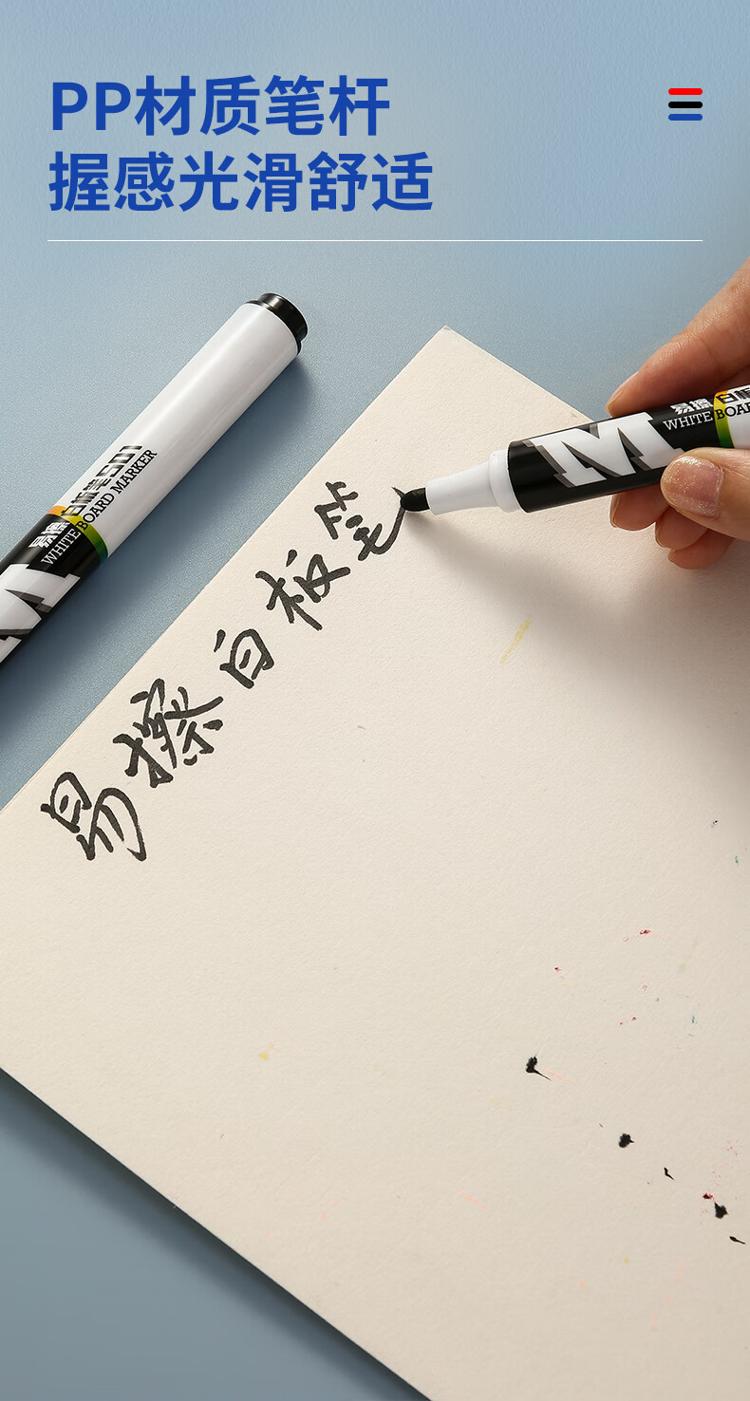 PP材质笔杆
握感光滑舒适
易擦白板笔S01
WHITE BOARD MARKER
M
易擦 白板
WHITE BOAR
M
易擦白板笔